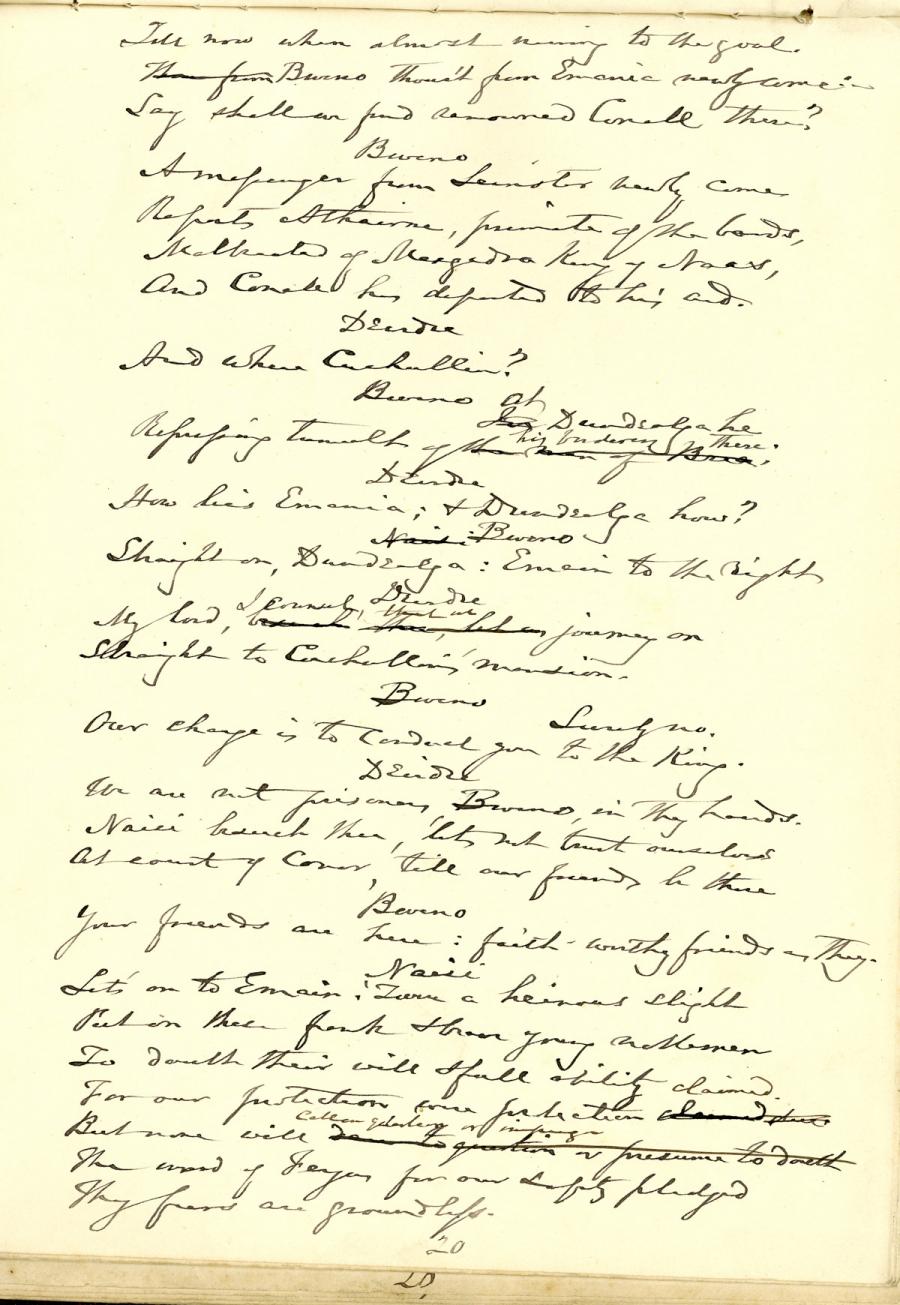 Till now when almost nearing to the goal.
Thou from Buino thou'st from Emania newly come:
Say shall we find renowned Conall there?
Buino
A messenger from Leinster newly come
Reports Athairne, primate of the bards,
Maltreated of Mesgedra King of Naas,
And Conall has departed to his aid.
Deirdre
And where Cuchullin?
Buino
At
Dundealga he
Repressing tumult of his bordering there.
the men of Brea.
Deirdre
How lies Emania; & Dundealga how?
Naisi: Buino
Straight on, Dundealga: Emain to the right
Deirdre
I counsel, that we
My lord, beseech thee, let us journey on
Straight to Cuchullin's mansion.
Buino
Surely no.
Our charge is to conduct you to the King.
Deirdre
We are not prisoners, Buino, in thy hands.
Naisi beseech thee, let's not trust ourselves
At court of Conor, till our friends be there
Buino
Your friends are here: faith-worthy friends as they.
Naisi
Let's on to Emain: 'Twere a heinous slight
Put on these frank & brave young noblemen
To doubt their will & full ability
For our protection were protection claimed.
claimed
But none will
question or presume to doubt
The word of Fergus for our safety pledged
Thy fears are groundless.
20
20